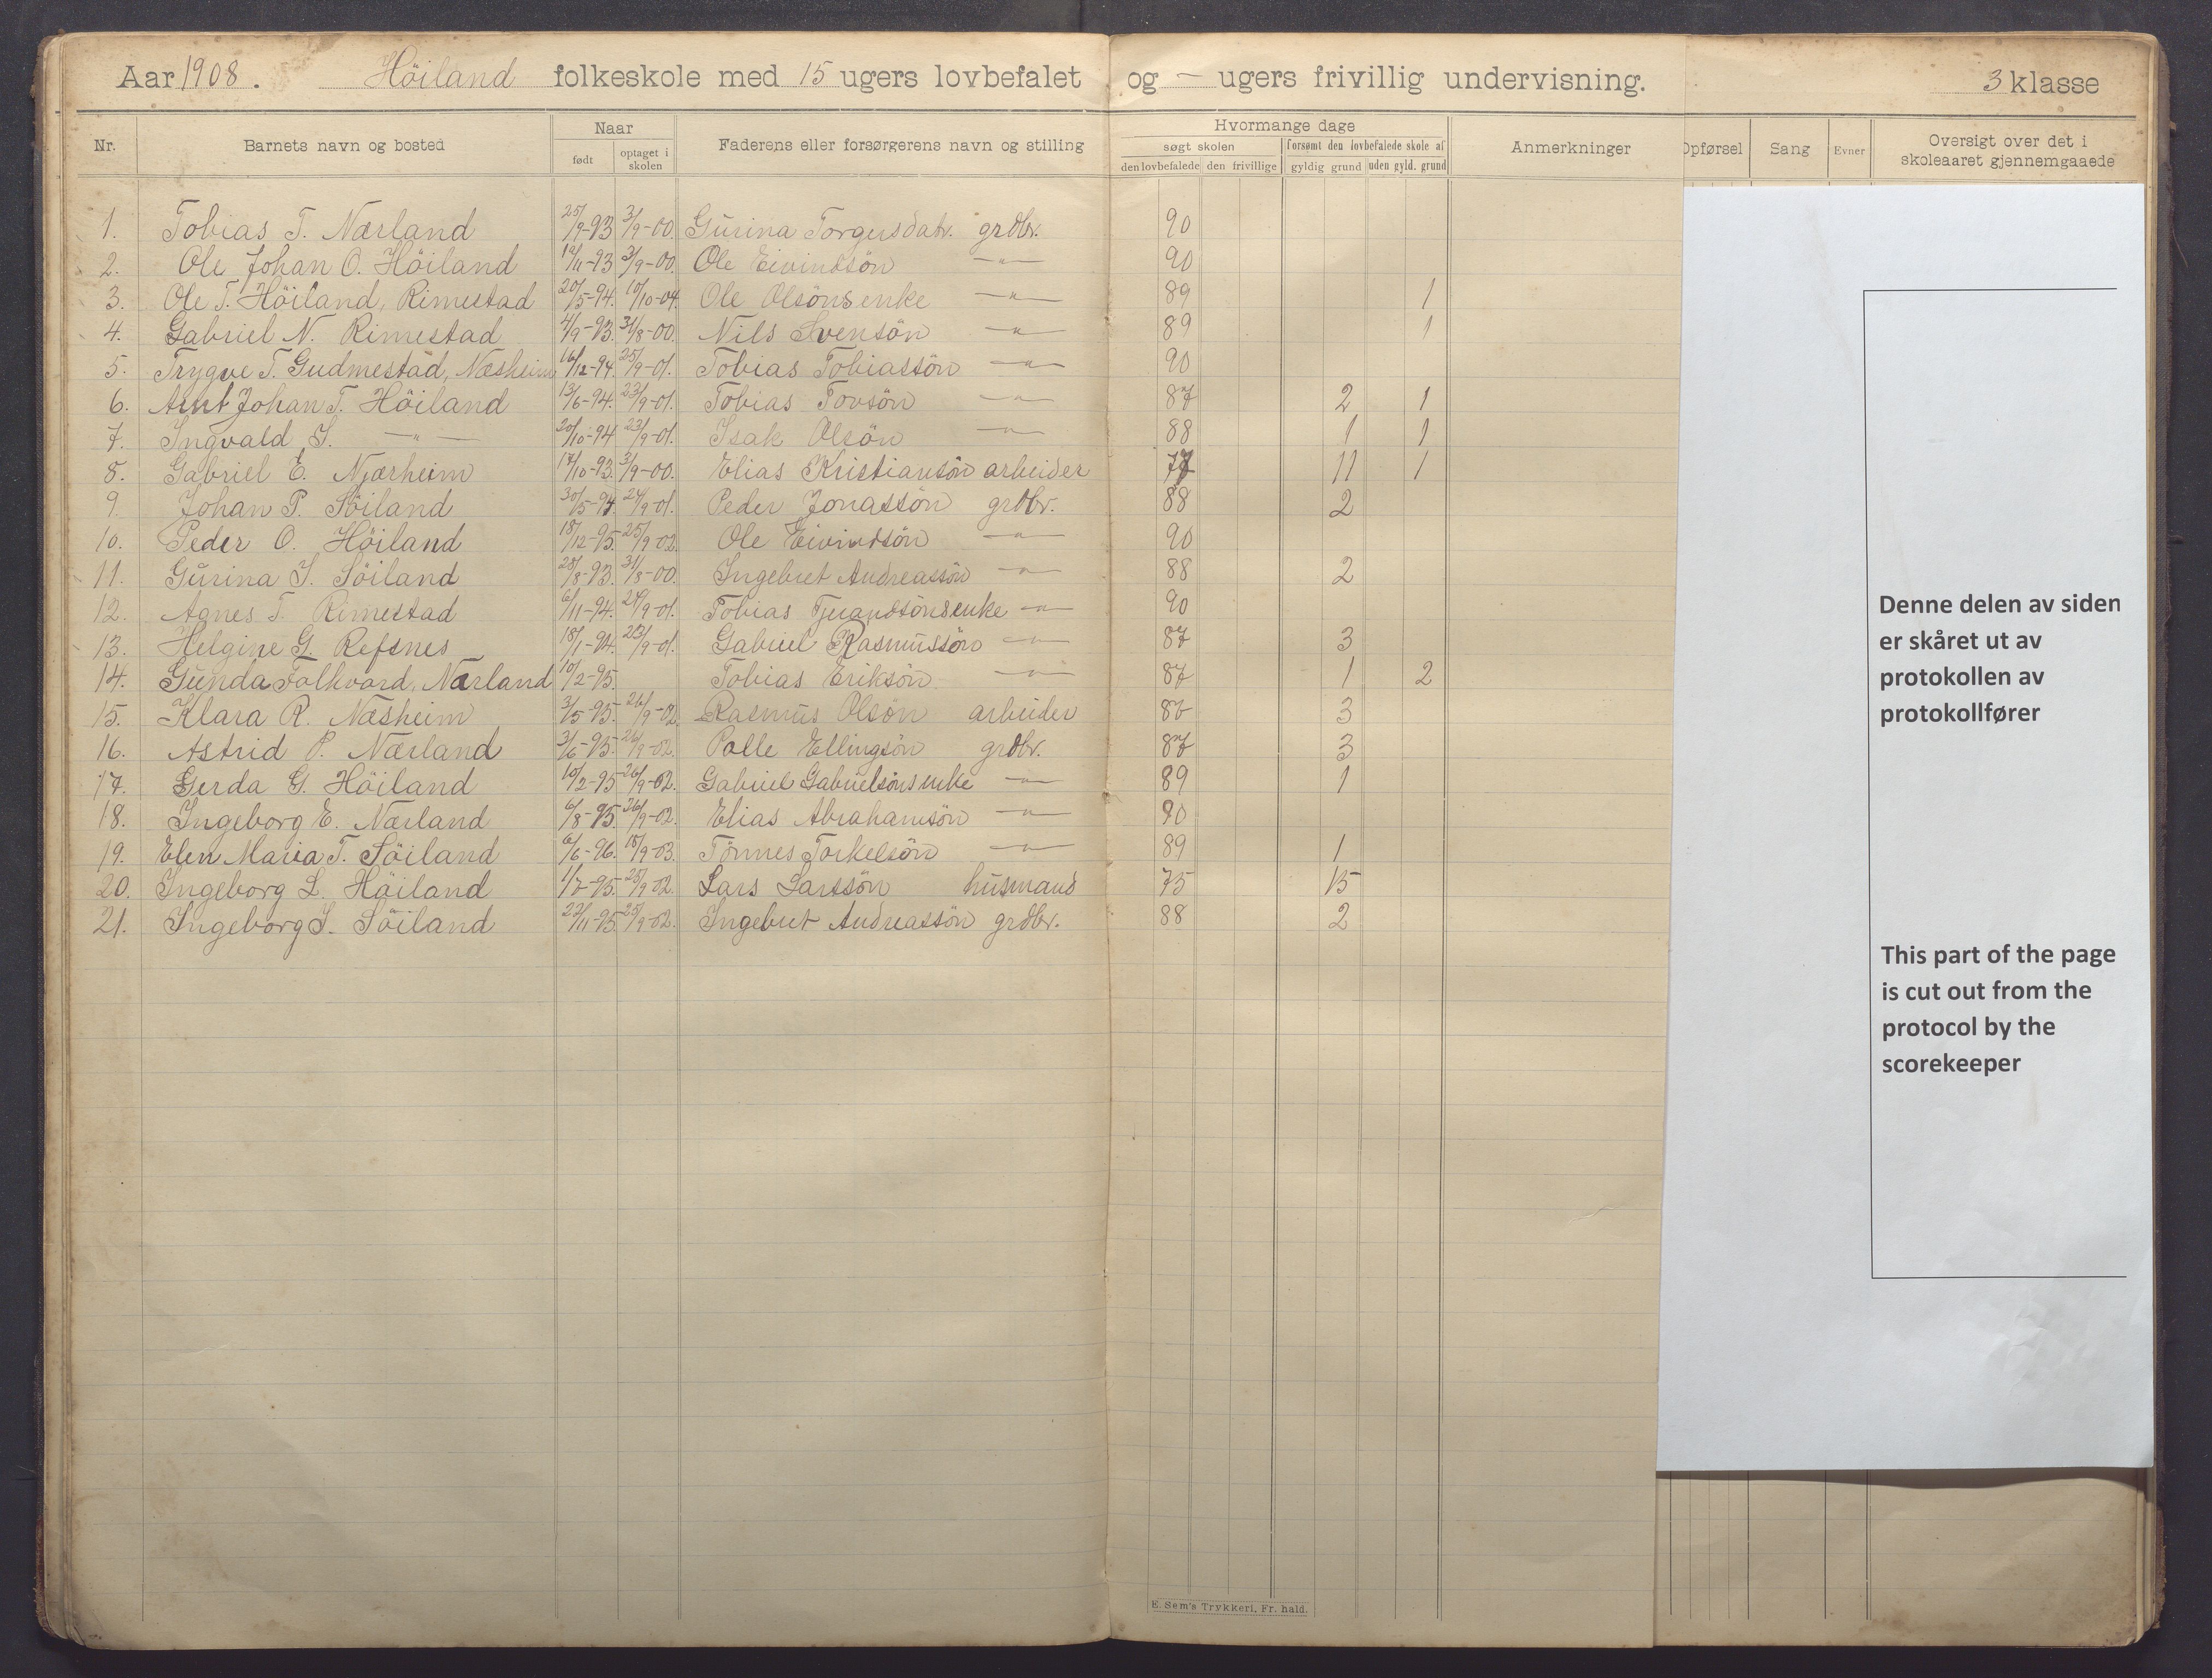 Aar 1908. Höiland folkeskole med 15 ugers lovbefalet og - ugers frivillig undervisning. 3 klasse
Nr. Barnets navn og bosted Naar født optaget i skolen Faderens eller forsørgerens navn og stilling Hvormange dage søgt skolen den lovbefalede den frivillige forsømt den lovbefalede skole af gyldig grund uden gyld. grund Anmerkninger Opførsel Sang Evner Oversigt over det i skoleaaret gjennemgaaede
1. Tobias T. Nærland 25/9-93 3/9-00. Gurina Torgersdatr. grdbr. 90
2. Ole Johan O. Höiland 19/11-93 3/9-00. Ole Eivindsön -"- 90
3. Ole T. Höiland, Rimestad 20/5-94. 10/10-04. Ole Olsöns enke -"- 89 1
4. Gabriel N. Rimestad 4/9-93. 31/8-00. Nils Svensön -"- 89 1
5. Trygve T. Gudmestad, Næsheim 16/12-94. 25/9-01. Tobias Tobiassön -"- 90
6. Arnt Johan T. Höiland 13/6-94. 23/9-01. Tobias Tovsön -"- 87 2 1
7. Ingvald I. -"- 20/10-94 23/9-01. Isak Olsön -"- 88 1 1
8. Gabriel E. Njærheim 17/10-93. 3/9-00. Elias Kristiansön arbeider 77 11 1
9. Johan P. Söiland 30/5-94 24/9-01. Peder Jonassön grdbr. 88 2
10. Peder O. Höiland 18/12-95. 25/9-02. Ole Eivindsön -"- 90
11. Gurina I. Söiland 28/8-93. 31/8-00. Ingebret Andreassön -"- 88 2
12. Agnes T. Rimestad 6/11-94. 24/9-01. Tobias Tjerandsöns enke -"- 90
13. Helgine G. Refsnes 18/1-94. 23/9-01. Gabriel Rasmussön -"- 87 3
14. Gunda Folkvord, Nærland 10/2-95. Tobias Eriksön -"- 87 1 2
15. Klara R. Næsheim 3/5-95. 26/9-02. Rasmus Olsön arbeider 86 3
16. Astrid P. Nærland 3/6-95. 26/9-02. Palle Ellingsön grdbr. 87 3
17. Gerda G. Höiland 10/2-95 26/9-02. Gabriel Gabrielsöns enke -"- 89 1
18. Ingeborg E. Nærland 6/8-95. 26/9-02. Elias Abrahamsön -"- 90
19. Elen Maria T. Söiland 6/6-96. 18/9-03. Tönnes Torkelsön -"- 89 1
20. Ingeborg L. Höiland 1/7-95. 25/9-02. Lars Larssön husmand 75 15
21. Ingeborg I. Söiland 23/11-95 25/9-02. Ingebret Andreassön grdbr. 88 2
E. Sem's Trykkeri, Fr. hald.
Denne delen av siden
er skåret ut av
protokollen av
protokollfører
This part of the page
is cut out from the
protocol by the
scorekeeper